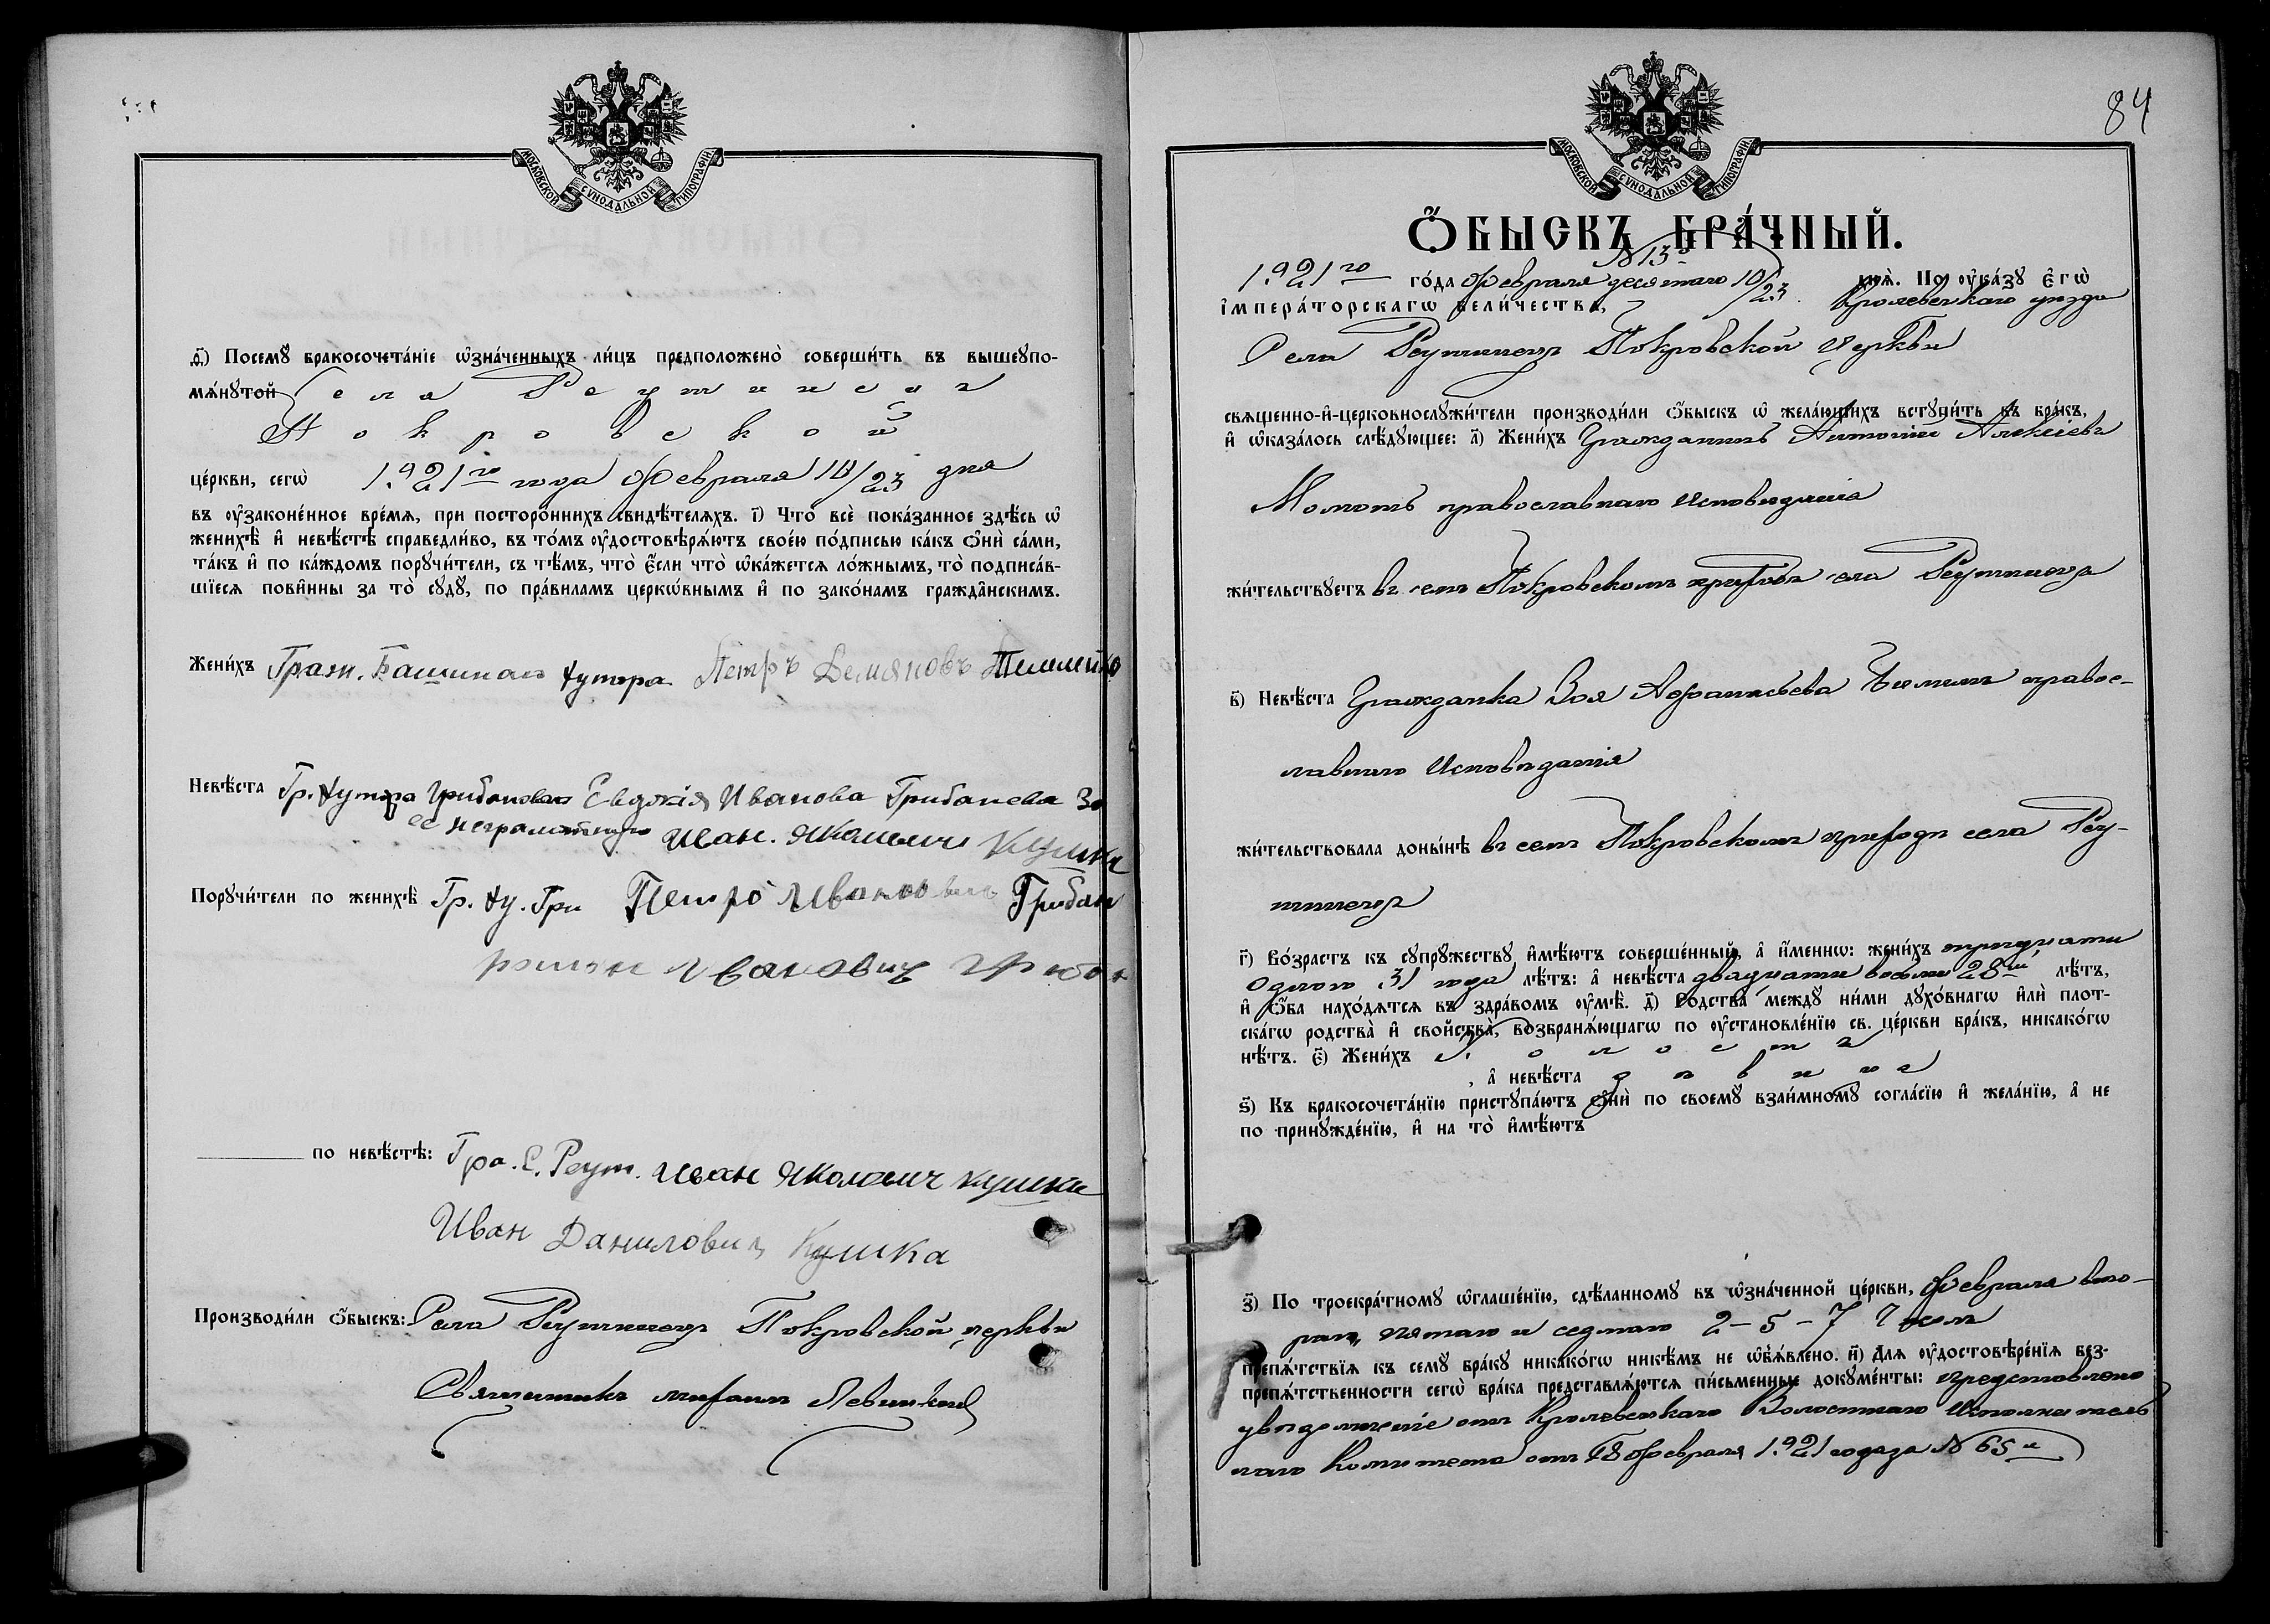 МОСКОВСКОЙ СѴНОДАЛЬНОЙ ТИПОГРАФІИ
ѳ҃) Посемꙋ̀ бракосочета́нїе ѡ҆зна́ченныхъ ли́цъ предположено̀ соверши́ть въ вышеꙋпо-
мѧ́нꙋтой Села Реутинецъ
Покровской
це́ркви, сегѡ̀ 1921го года Февраля 10/23 дня
въ ᲂу҆законе́нное вре́мѧ, при посторо́ннихъ свидѣ́телѧхъ. і҃) Что̀ всѐ пока́занное здѣ́сь ѡ҆
женихѣ̀ и҆ невѣ́стѣ справедли́во, въ то́мъ ᲂу҆достовѣрѧ́ютъ свое́ю по́дписью ка́къ ѻ҆нѝ са́ми,
та́къ и҆ по ка́ждомъ порꙋчи́тели, съ тѣ́мъ, что̀ є҆́сли что̀ ѡ҆ка́жетсѧ ло́жнымъ, то̀ подписа́в-
шїесѧ пови́нны за то̀ сꙋдꙋ̀, по пра́виламъ церкѡ́внымъ и҆ по зако́намъ гражда̑нскимъ.
Жени́хъ Граж. хутора Петръ Демяновъ
Невѣ́ста Гр. хутора Евдокія Иванова Грибанева За
ее неграмотную Иван. Яколевич Кушка
Порꙋчи́тели по женихѣ̀ Гр. ху. Гри Петро Иванович Грибан
роман Иванович Грибан
по невѣ́стѣ: Гра. С. Реут. Иван Яколович Кушка
Иван Данилович Кушка
Производи́ли ѻ҆́быскъ: Села Реутинецъ Покровской церкви
Священникъ Михаилъ Левицкій
84
МОСКОВСКОЙ СѴНОДАЛЬНОЙ ТИПОГРАФІИ
Ѻ҆́БЫСКЪ БРА́ЧНЫЙ.
№ 13
1921го го́да Февраля десятаго 10/23 днѧ̀. По ᲂу҆ка́зꙋ є҆гѡ̀
і҆мпера́торскагѡ вели́чества, Кролевецкаго уезда
Села Реутинецъ Покровской Церкви
свѧще́нно-и҆-церковнослꙋжи́тели производи́ли ѻ҆́быскъ ѡ҆ жела́ющихъ встꙋпи́ть въ бра́къ,
и҆ ѡ҆каза́лось слѣ́дꙋющее: а҃) Жени́хъ Гражданинъ Антоній Алексіевъ
Момотъ православнаго исповеданія
жи́тельствꙋетъ въ семъ Покровскомъ приходе села Реутинецъ
в҃) Невѣ́ста Гражданка Зоя Афанасьева правос-
лавнаго Исповеданія
жи́тельствовала доны́нѣ въ семъ Покровскомъ приходе села Реу-
тинецъ
г҃) Во́зрастъ къ сꙋпрꙋ́жествꙋ и҆мѣ́ютъ соверше́нный, а҆ и҆́меннѡ: жени́хъ тридцати
одного 31 года лѣ́тъ: а҆ невѣ́ста двадцати восьми 28ми лѣ́тъ,
и҆ ѻ҆́ба нахо́дѧтсѧ въ здра́вомъ ᲂу҆мѣ̀. д҃) Родства̀ междꙋ̀ ни́ми дꙋхо́внагѡ и҆лѝ плот-
ска́гѡ родства̀ и҆ свойства̀, возбранѧ́ющагѡ по ᲂу҆становле́нїю св. це́ркви бра́къ, никако́гѡ
нѣ́тъ. є҃) Жени́хъ холостъ
, а҆ невѣ́ста девица
ѕ҃) Къ бракосочета́нїю пристꙋпа́ютъ ѻ҆нѝ по своемꙋ̀ взаи́мномꙋ согла́сїю и҆ жела́нїю, а҆ не
по принꙋжде́нїю, и҆ на то̀ и҆мѣ́ютъ
з҃) По троекра́тномꙋ ѡ҆глаше́нїю, сдѣ́ланномꙋ въ ѡ҆зна́ченной це́ркви, Февраля вто-
раго, пятаго и седмаго 2-5-7 числъ
препѧ́тствїѧ къ семꙋ̀ бра́кꙋ никако́гѡ никѣ́мъ не ѡ҆б̾ѧ́влено. и҃) Длѧ ᲂу҆достовѣре́нїѧ без-
препѧ́тственности сегѡ̀ бра́ка представлѧ́ютсѧ пи́сьменные докꙋме́нты: представлено
уведомленіе отъ Кролевецкаго Волостнаго Исполнитель
наго Комитета отъ Февраля 1921 года за № 65